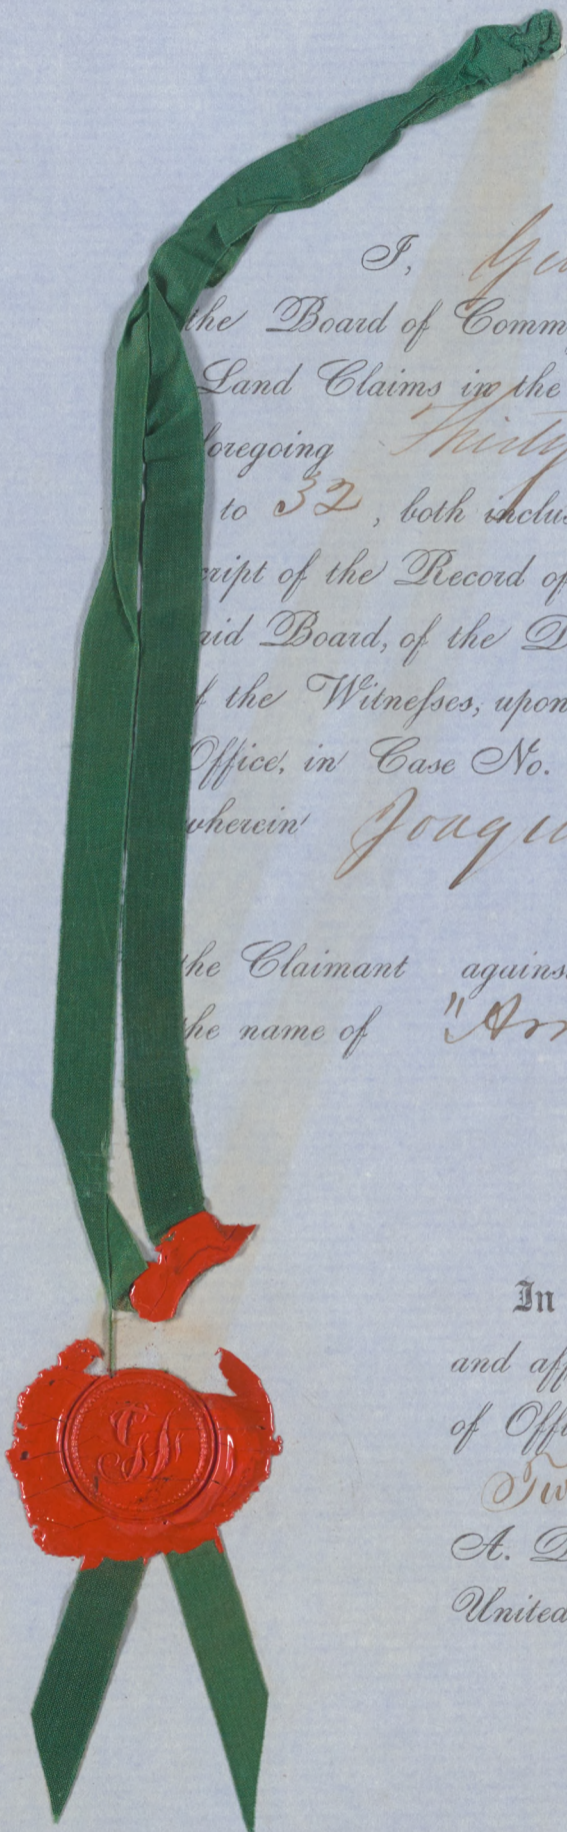 I, Ge
the Board of Comm
Land Claims in the
foregoing Thirty
to 32, both inclus
cript of the Record of
aid Board, of the D
f the Witnesses, upon
Office, in Case No.
wherein Joaqu
the Claimant agains
the name of "Arr
In
and aff
of Offi
Tw
A. D
United